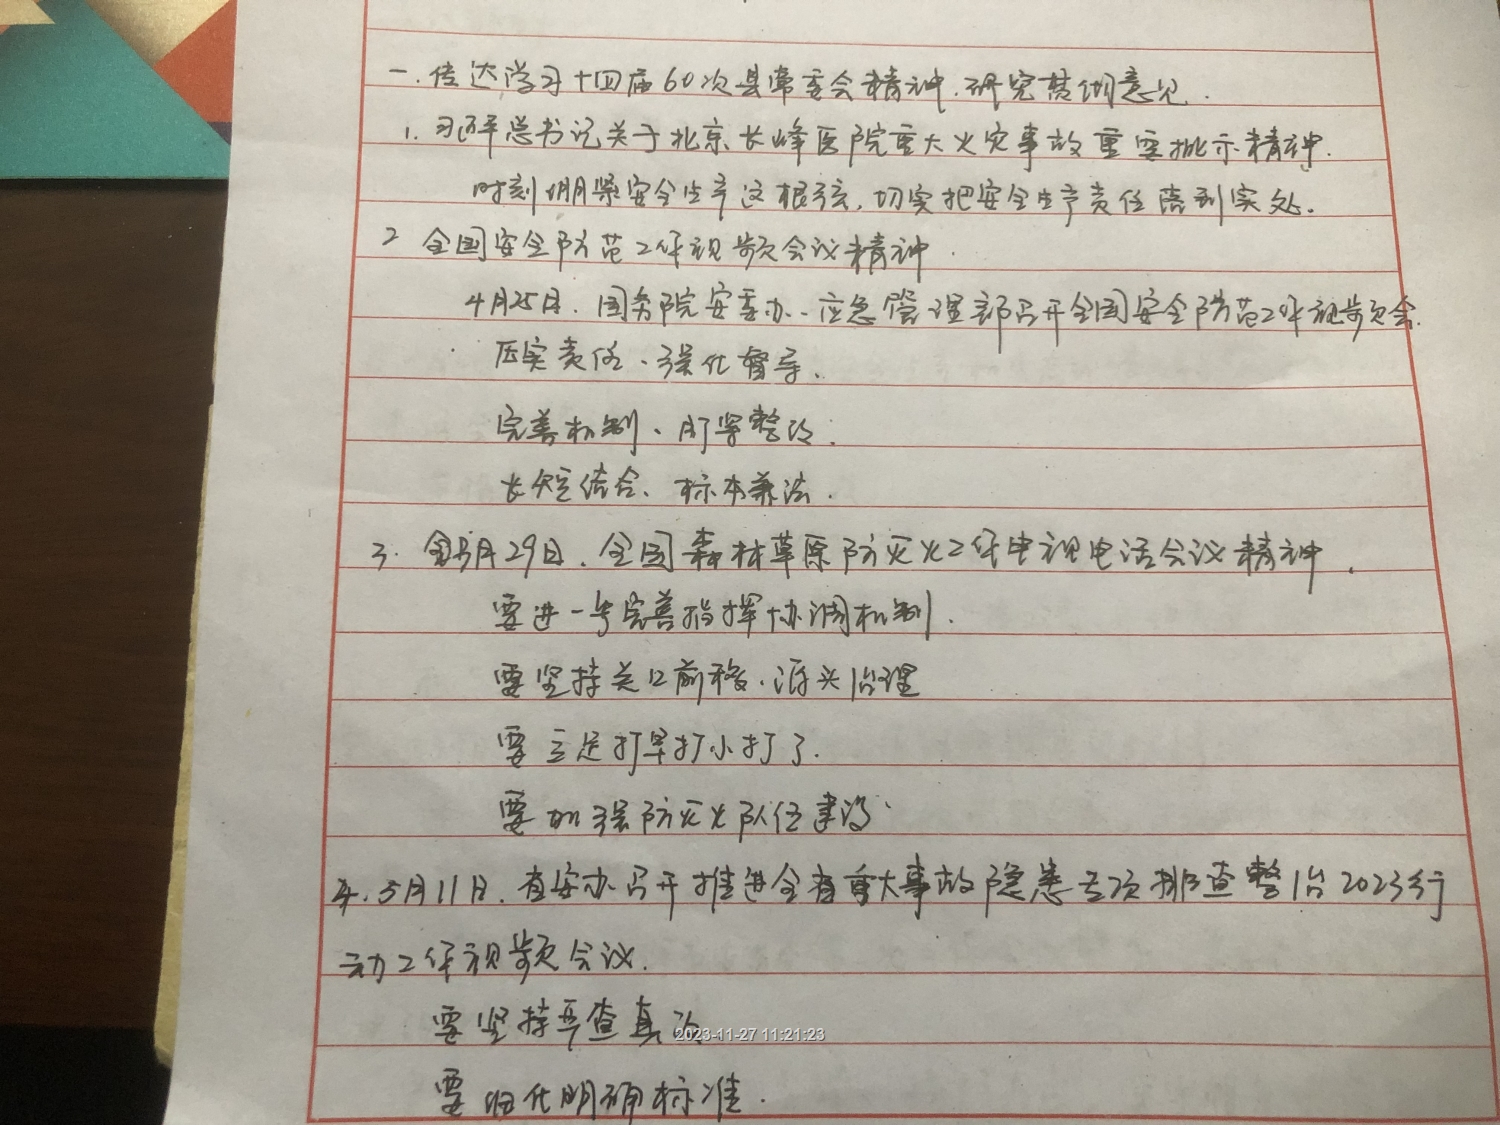 一.传达学习十四届60次县常委会精神.研究贯彻意见.
1.习近平总书记关于北京长峰医院重大火灾事故重要批示精神.
时刻绷紧安全生产这根弦,切实把安全生产责任落到实处.
2 全国安全防范工作视频会议精神.
4月25日.国务院安委办、应急管理部召开全国安全防范工作视频会.
压实责任、强化督导、
完善机制、盯紧整改.
长短结合、标本兼治.
3. 月29日.全国森林草原防灭火工作电视电话会议精神.
要进一步完善指挥协调机制.
要坚持关口前移.源头治理
要立足打早打小打了.
要加强防灭火队伍建设.
4.5月11日.省安办召开推进全省重大事故隐患专项排查整治2023行
动工作视频会议.
要坚持严查真改
要细化明确标准.
2023-11-27 11:21:23